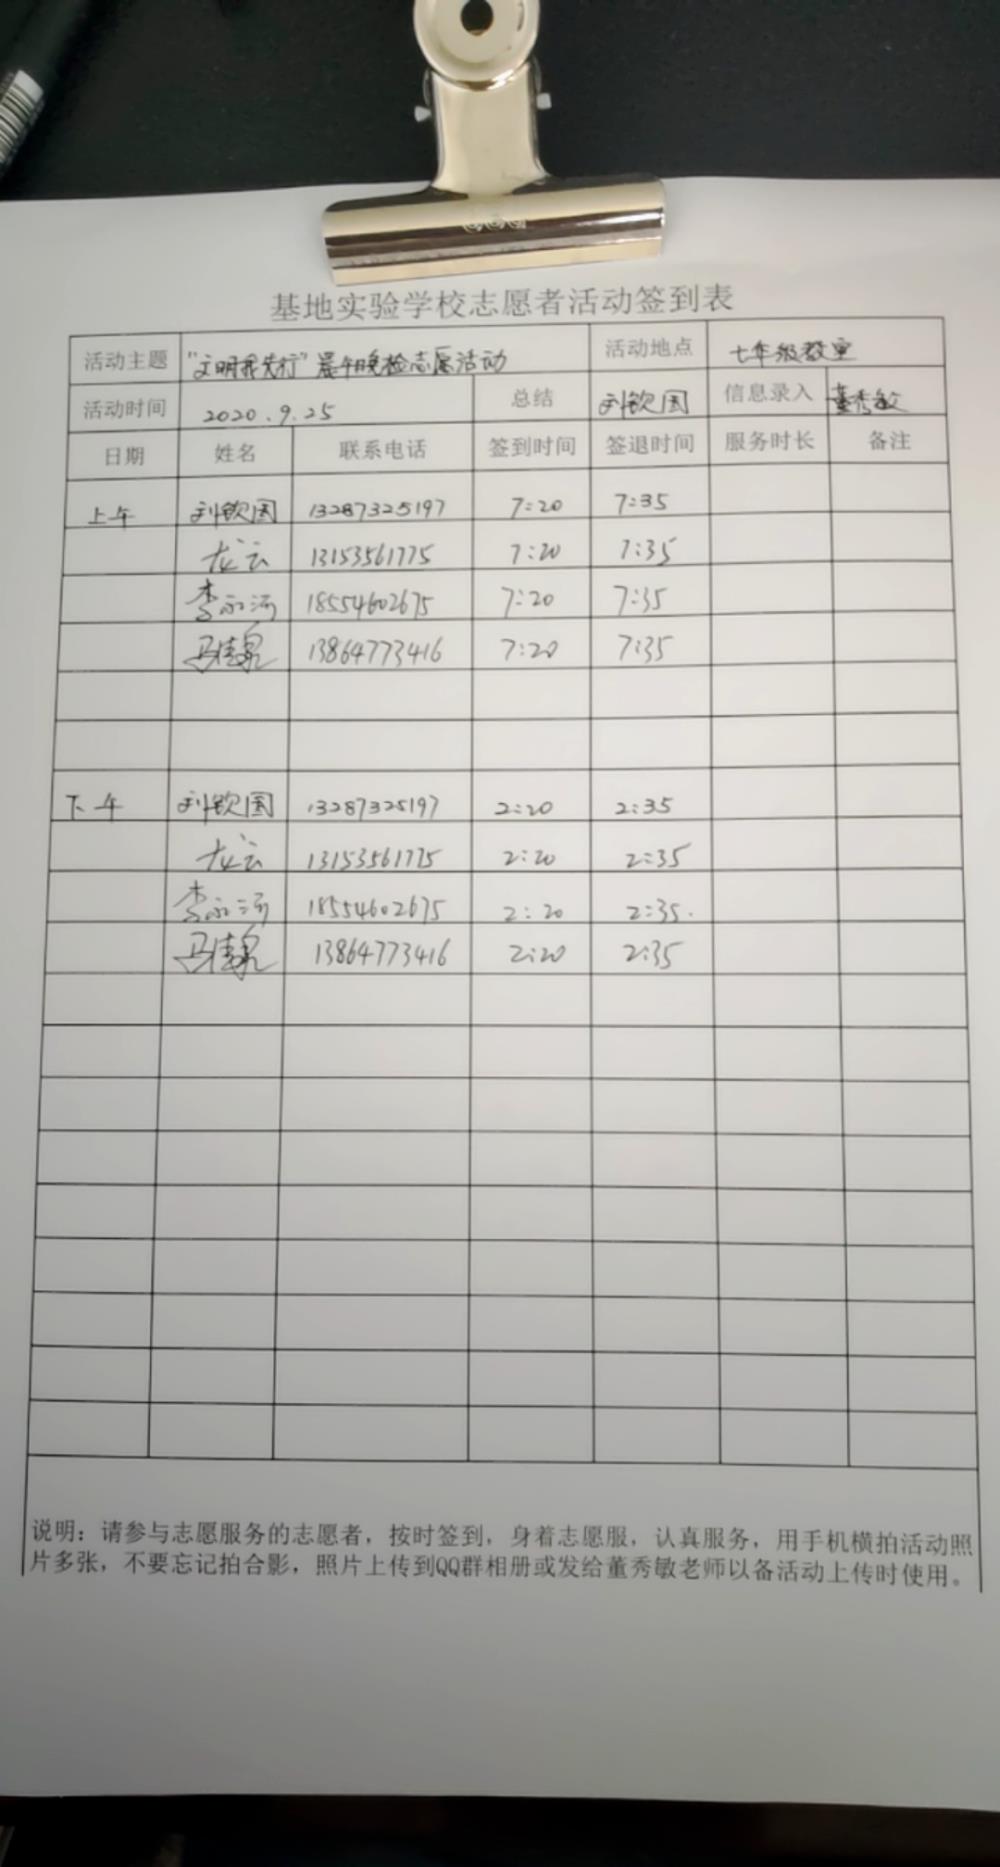 基地实验学校志愿者活动签到表
活动主题 "文明我先行"晨午晚检志愿活动 活动地点 七年级教室
活动时间 2020.9.25 总结 刘钦国 信息录入 董秀敏
日期 姓名 联系电话 签到时间 签退时间 服务时长 备注
上午 刘钦国 13287325197 7:20 7:35
龙云 13153561775 7:20 7:35
李永河 18554602675 7:20 7:35
马佳泉 13864773416 7:20 7:35
下午 刘钦国 13287325197 2:20 2:35
龙云 13153561775 2:20 2:35
李永河 18554602675 2:20 2:35.
马佳泉 13864773416 2:20 2:35
说明：请参与志愿服务的志愿者，按时签到，身着志愿服，认真服务，用手机横拍活动照
片多张，不要忘记拍合影，照片上传到QQ群相册或发给董秀敏老师以备活动上传时使用。